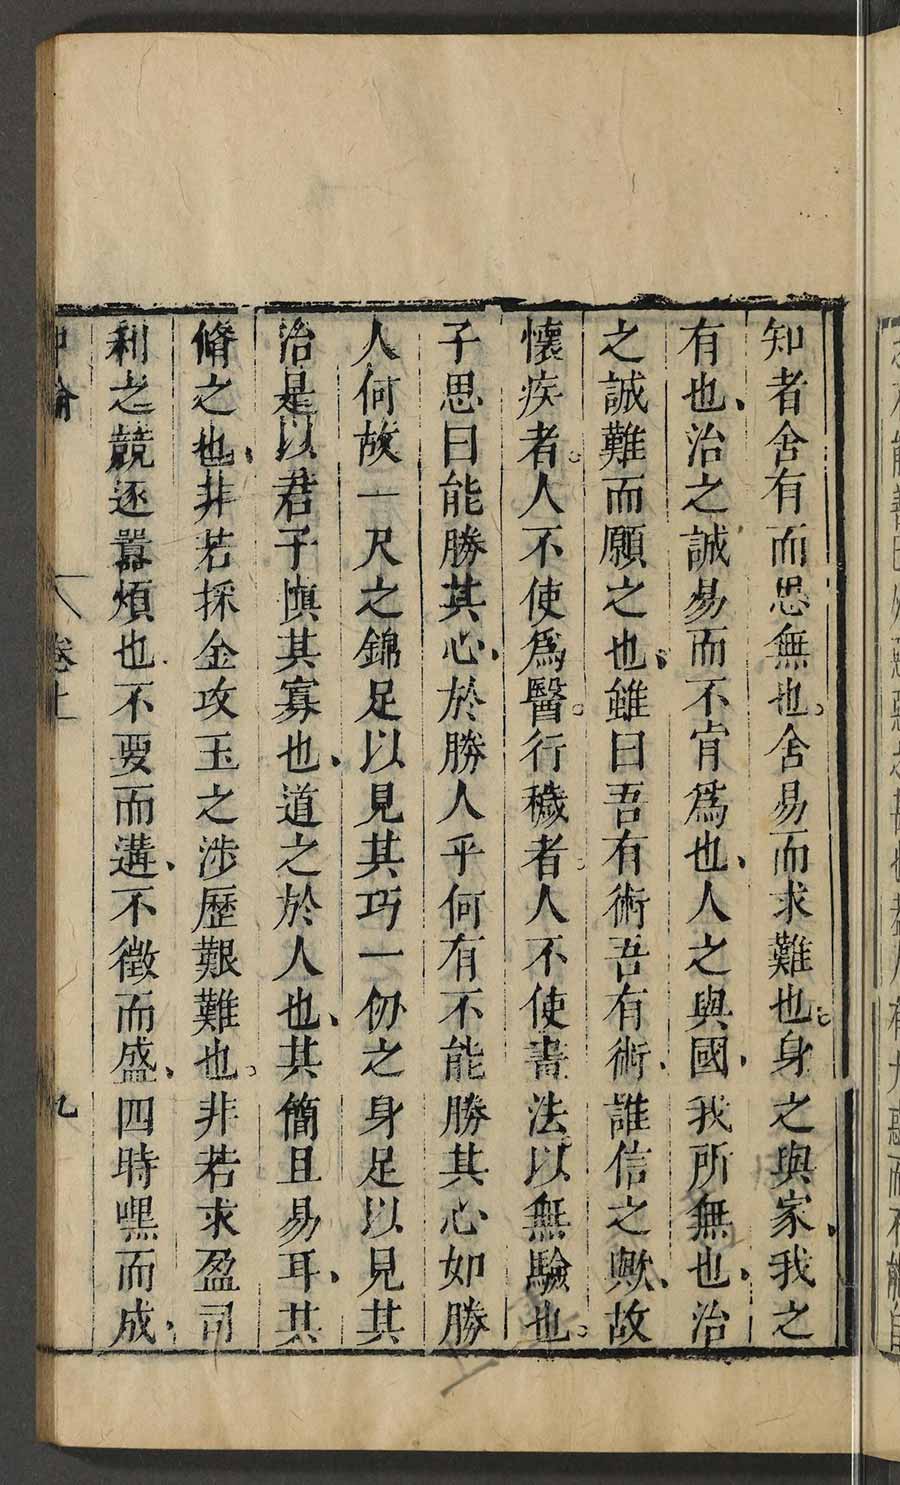 知者舍有而思無也舍易而求難也身之與家我之
有也治之誠易而不肯爲也人之與國我所無也治
之誠難而願之也雖曰吾有術吾有術誰信之歟故
懷疾者人不使爲醫行穢者人不使畫法以無驗也
子思曰能勝其心於勝人乎何有不能勝其心如勝
人何故一尺之錦足以見其巧一仞之身足以見其
治是以君子慎其寡也道之於人也其簡且易耳其
脩之也非若採金攻玉之涉歷艱難也非若求盈司
利之競逐囂煩也不要而遘不徵而盛四時嘿而成
中論 卷上 九